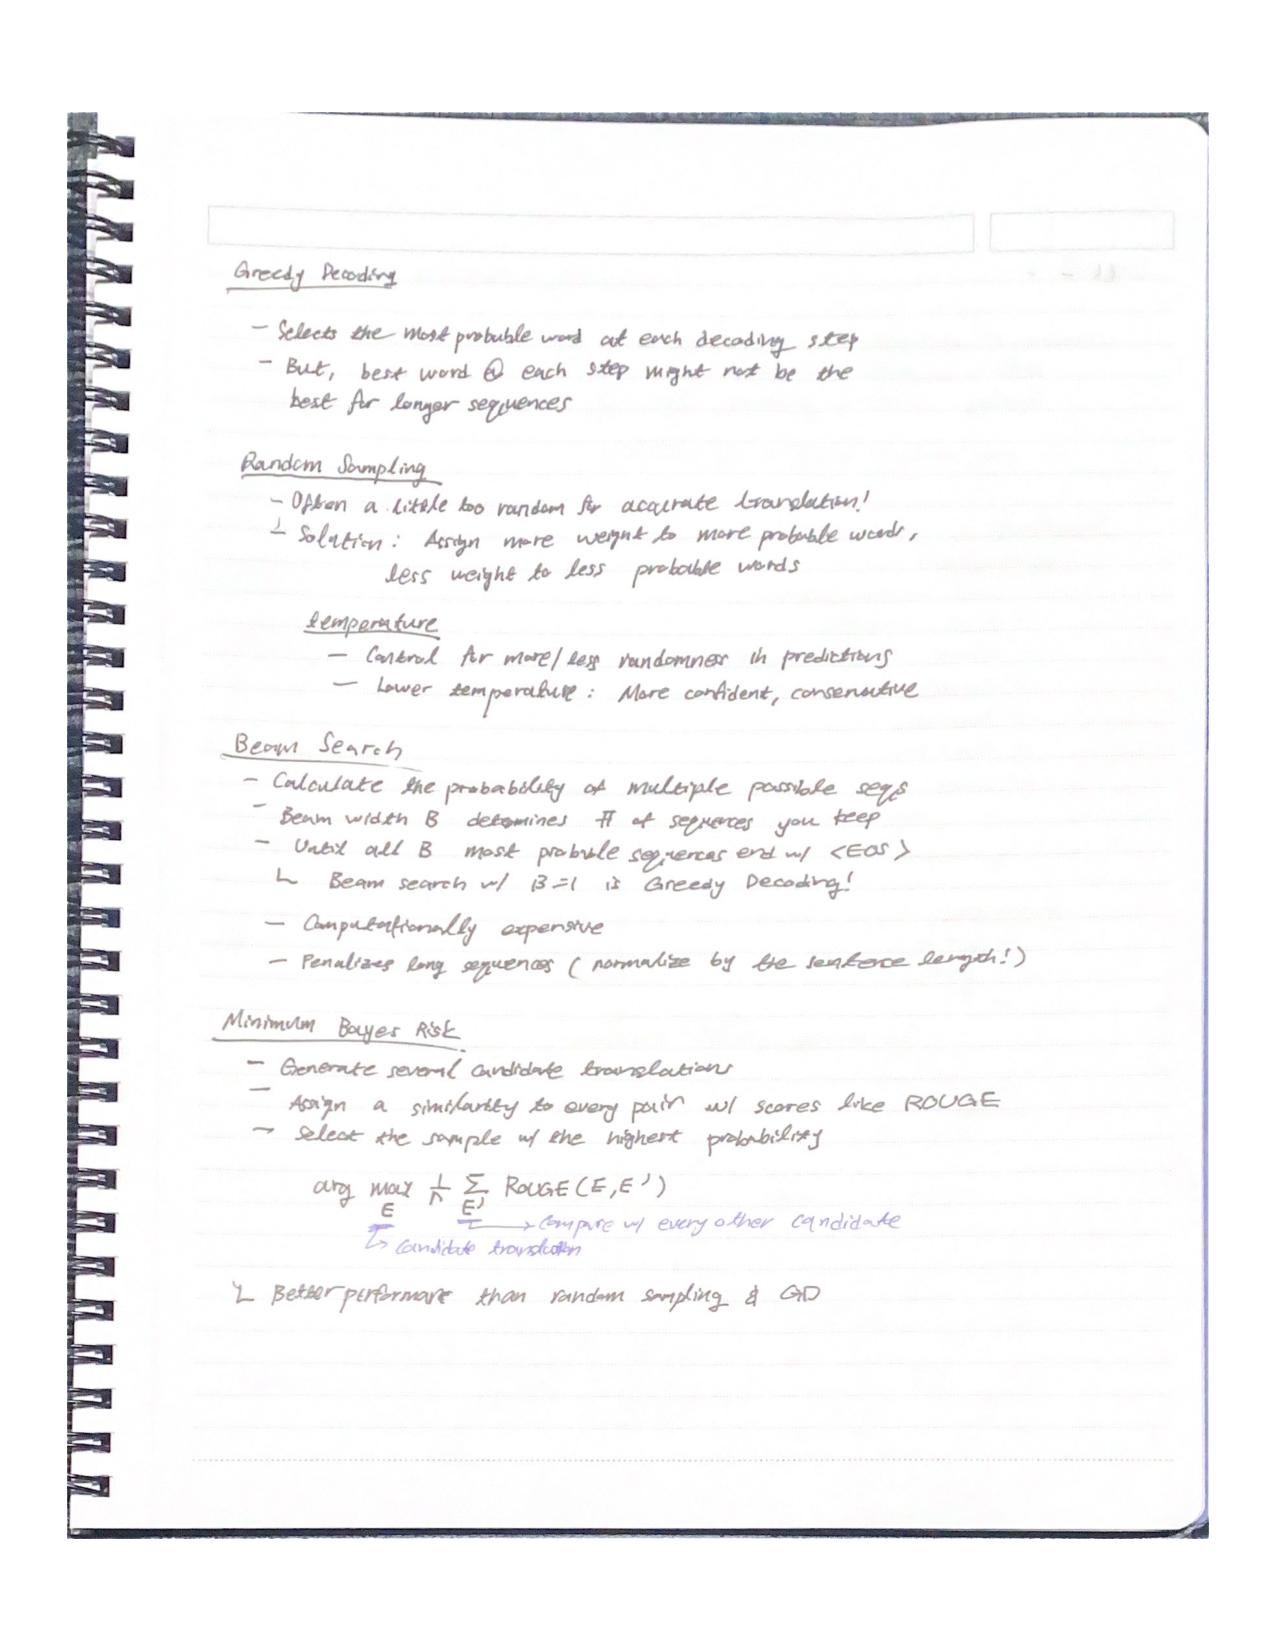 Greedy Decoding
- Selects the most probable word at each decoding step
- But, best word @ each step might not be the
best for longer sequences
Random Sampling
- Often a little too random for accurate translation!
└ Solution: Assign more weight to more probable words,
less weight to less probable words
temperature
- Control for more/less randomness in predictions
- Lower temperature: More confident, conservative
Beam Search
- Calculate the probability of multiple possible seqs
- Beam width B determines # of sequences you keep
- Until all B most probable sequences end w/ <EOS>
└ Beam search w/ B=1 is Greedy Decoding!
- Computationally expensive
- Penalizes long sequences (normalize by the sentence length!)
Minimum Bayes Risk
- Generate several candidate translations
- Assign a similarity to every pair w/ scores like ROUGE
- Select the sample w/ the highest probability
arg max 1/n Σ ROUGE(E,E')
E E'
→ Compare w/ every other candidate
↳ candidate translation
└ Better performance than random sampling & GD